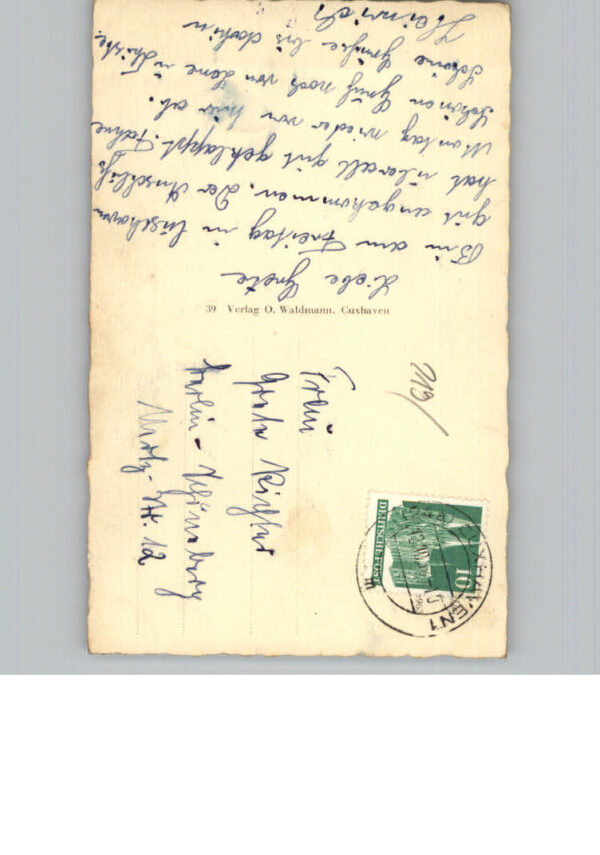 Liebe Grete
Bin am Freitag in Cuxhaven
gut angekommen. Der Anschluß
hat überall gut geklappt. Fahre
Montag wieder von hier ab.
Schönen Gruß noch von Tone u.
Schöne Grüße bis dahin
Heinrich
39 Verlag O. Waldmann, Cuxhaven
Frau
Grete Richter
Berlin-Schöneberg
Str. 12
219/
10
DEUTSCHE POST